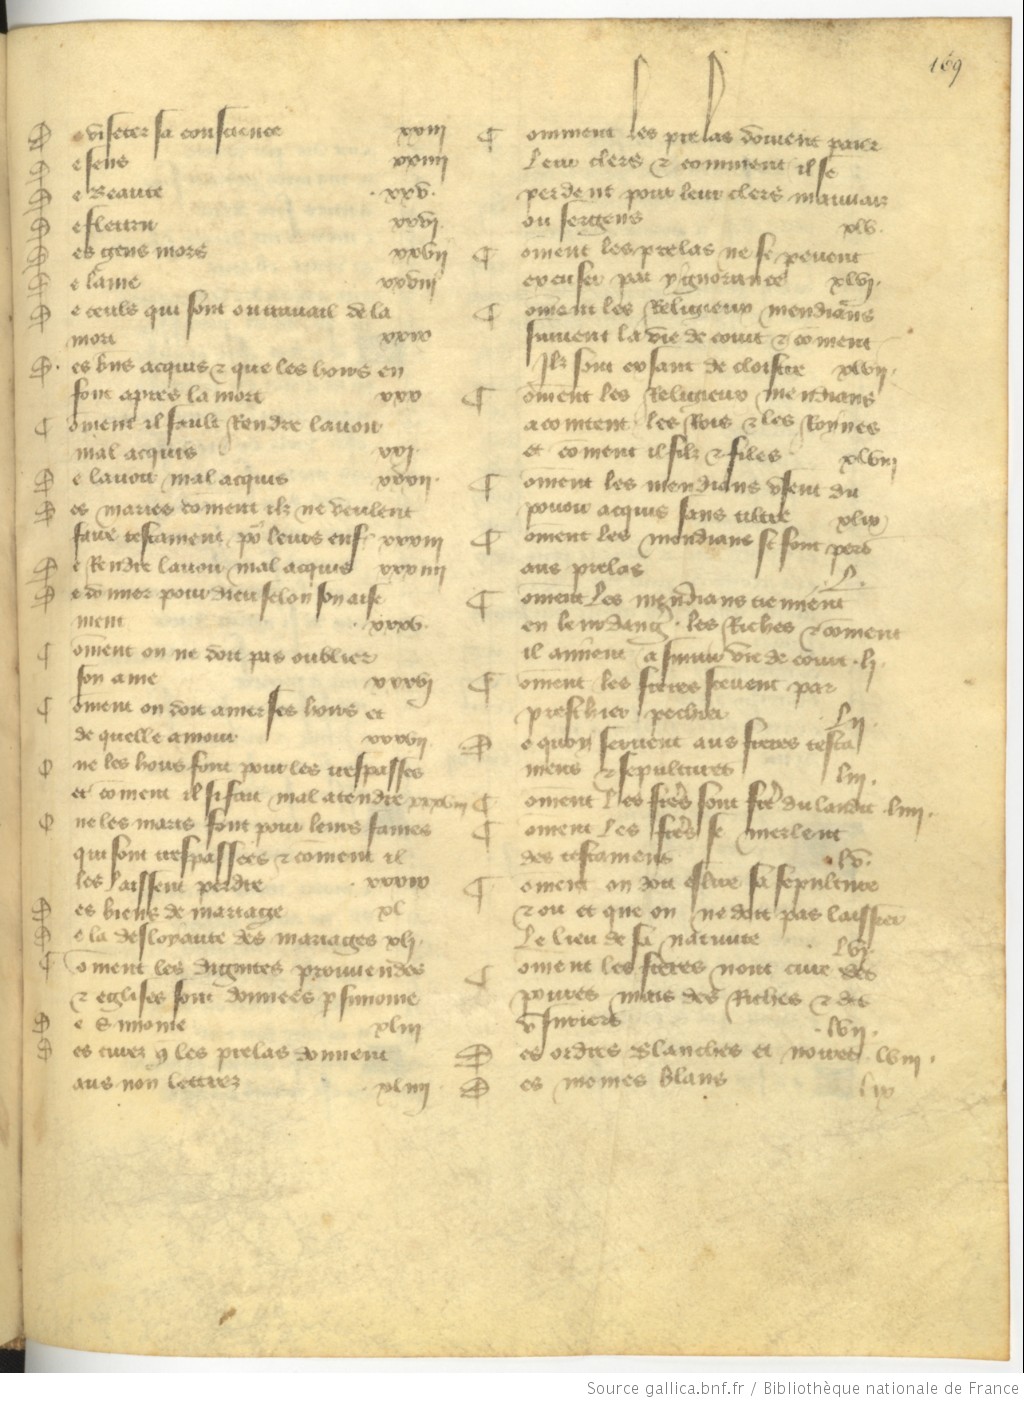 169
De viseter sa conscience xxiii
De sens xxiiii
De Beaute .xxv.
De fleurir xxvi.
Des gens mors xxvii
De lame xxviii
De ceuls qui sont ou travail de la
mort xxix
Des bns acquis & que les hoirs en
font apres la mort xxx
Coment il fault Rendre lavoir
mal acquis xxxi
De lavoir mal acquis xxxii.
Des maries coment ilz ne veulent
faire testament po leurs enf xxxiii
De Rendre lavoir mal acquis xxxiiii
De donner pour dieu selon son aise
ment .xxxv.
Coment on ne doit pas oublier
son ame xxxvi
Coment on doit amer ses hoirs et
de quelle amour xxxvii
Que les hoirs font pour les trespasses
et coment il si fau mal atendre xxxviii
Que les maris font pour leurs fames
qui sont trespassees & coment il
les laissent perdre .xxxix
Des biens de mariage xl
De la desloyaute des mariages xli.
Coment les dignites prouvendes
& eglises sont donnees p simonie
De Simonie xliii
Des cures q les prelas donnent
aus non lettrez .xliiii
Comment les prelas doivent paier
leur clers & comment il se
perdent pour leur clers mauvaiz
ou sergens xlv.
Coment les prelas ne se peuent
excuser par ygnorance xlvi.
Coment les Religieux mendians
suivent la vie de court & coment
Ilz sont exsant de cloistre xlvii.
Coment les Religieux mendians
acointent les Rois & les Roynes
et coment il filz & filles xlviii
Coment les mendians usent du
pouoir acquis sans tiltre xlix
Coment les mendians se sont pers
aus prelas L.
Coment les mendians tiennent
en leur dang. les Riches & coment
il aiment a suivir vie de court .li.
Coment les freres scevent par
preschier pechier Lii.
De quoy servent aus freres testa
mens & sepultures Liii.
Coment les freres sont fre du landit .Liiii.
Coment les freres se merlent
des testamens .Lv.
Coment on doit eslire sa sepulture
& ou et que on ne doit pas laissier
Le lieu de sa nativite Lvi.
Coment les freres nont cure des
povres mais des Riches & des
usuriers .Lvii.
Des ordres Blanches et noires .Lviii.
Des moines blans Lix
Source gallica.bnf.fr / Bibliothèque nationale de France